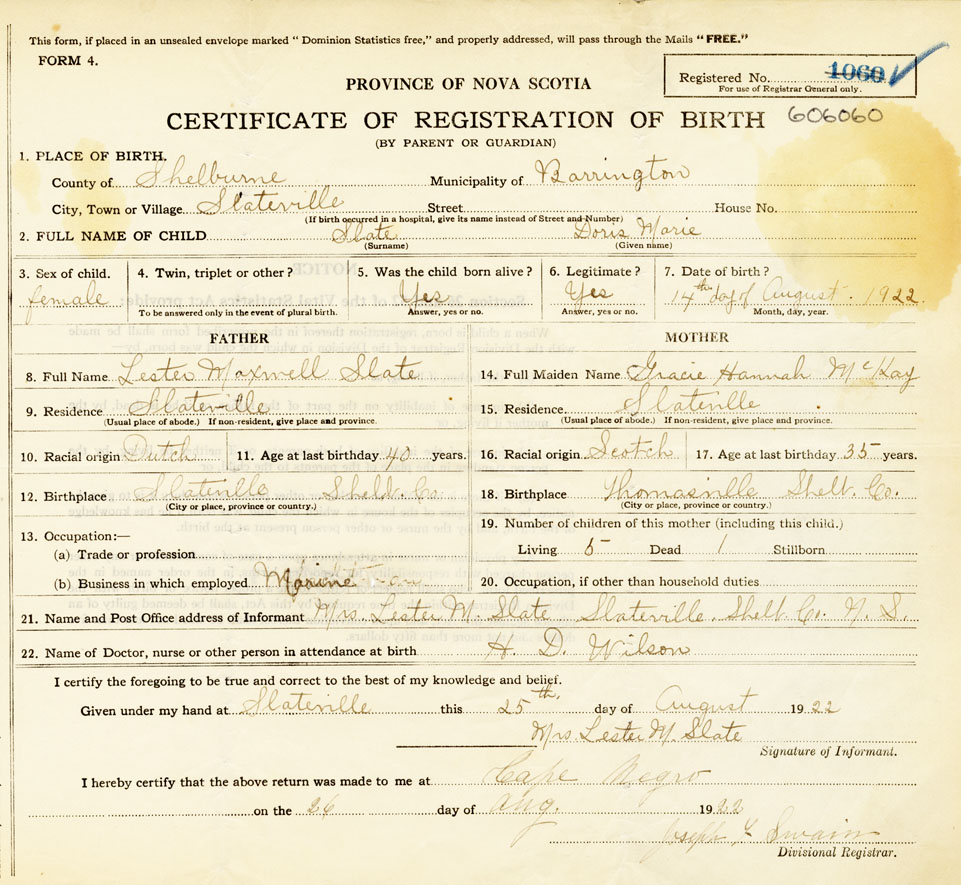 This form, if placed in an unsealed envelope marked "Dominion Statistics free," and properly addressed, will pass through the Mails "FREE."
FORM 4.
Registered No. 1060
For use of Registrar General only.
PROVINCE OF NOVA SCOTIA
CERTIFICATE OF REGISTRATION OF BIRTH 606060
(BY PARENT OR GUARDIAN)
1. PLACE OF BIRTH.
County of Shelburne Municipality of Barrington
City, Town or Village Slateville Street House No.
(If birth occurred in a hospital, give its name instead of Street and Number)
2. FULL NAME OF CHILD Slate Doris Marie
(Surname) (Given name)
3. Sex of child. 4. Twin, triplet or other? 5. Was the child born alive? 6. Legitimate? 7. Date of birth?
female Yes Yes 14th day of August. 1922.
To be answered only in the event of plural birth. Answer, yes or no. Answer, yes or no. Month, day, year.
FATHER MOTHER
8. Full Name Lester Maxwell Slate 14. Full Maiden Name Gracie Hannah McKay
9. Residence Slateville 15. Residence Slateville
(Usual place of abode.) If non-resident, give place and province. (Usual place of abode.) If non-resident, give place and province.
10. Racial origin Dutch 11. Age at last birthday 40 years. 16. Racial origin Scotch 17. Age at last birthday 35 years.
12. Birthplace Slateville Shelb. Co. 18. Birthplace Thomasville Shelb. Co.
(City or place, province or country.) (City or place, province or country.)
19. Number of children of this mother (including this child.)
13. Occupation:—
(a) Trade or profession Living 5 Dead 1 Stillborn
(b) Business in which employed 20. Occupation, if other than household duties
21. Name and Post Office address of Informant Mrs. Lester M. Slate Slateville. Shelb. Co. N. S.
22. Name of Doctor, nurse or other person in attendance at birth H. D. Wilson
I certify the foregoing to be true and correct to the best of my knowledge and belief.
Given under my hand at Slateville this 25th. day of August 1922
Mrs. Lester M. Slate
Signature of Informant.
I hereby certify that the above return was made to me at Cape Negro
on the 26 day of Aug. 1922
Joseph Swain
Divisional Registrar.